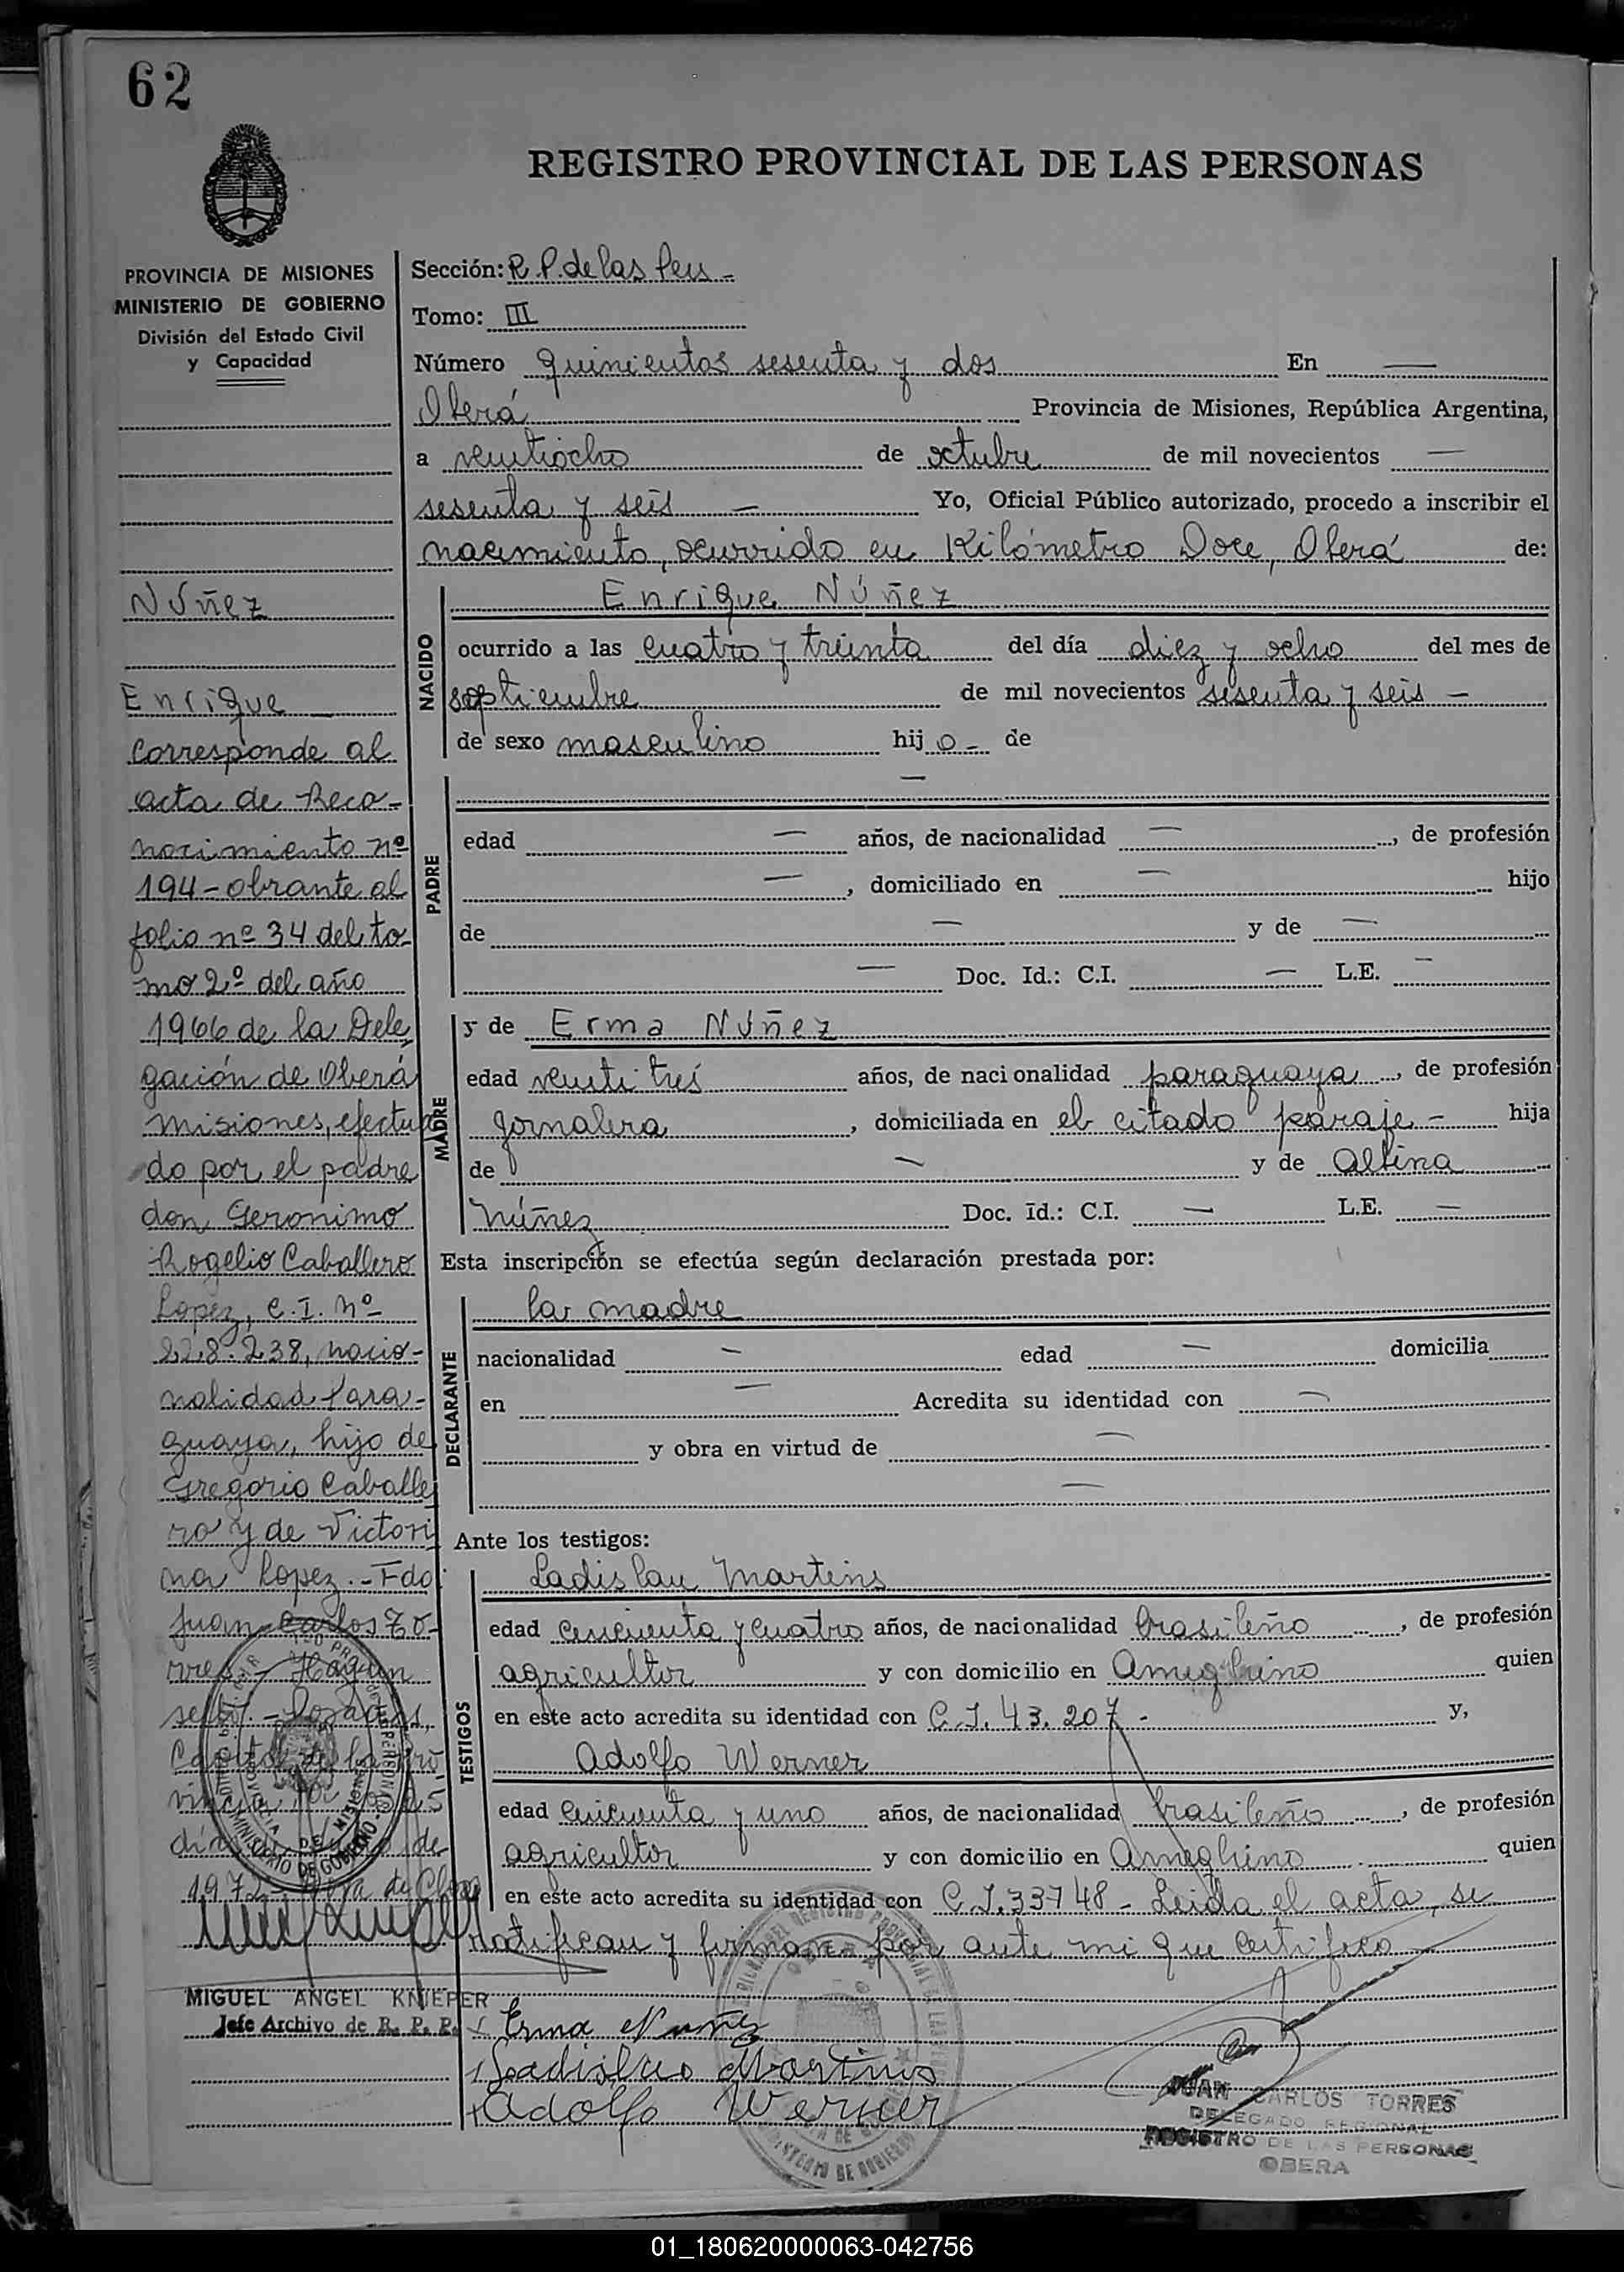 62
REGISTRO PROVINCIAL DE LAS PERSONAS
PROVINCIA DE MISIONES
MINISTERIO DE GOBIERNO
División del Estado Civil
y Capacidad
NÚñez
Enrique
corresponde al
acta de Reco-
nocimiento nº
194-obrante al
folio nº 34 del to-
mo 2º del año
1966 de la Dele
gación de Oberá
misiones, efectua
do por el padre
don Geronimo
Rogelio Caballero
Lopez, C.I. Nº
228.238, nacio-
nalidad Para-
guaya, hijo de
Gregorio Caballe
ro y de Victori
na Lopez.-Fdo
Juan Carlos To-
rres.- Hay un
sello.- Posadas,
Capital de la Pro
vincia
días de
1972.-
MIGUEL ANGEL KNIEPER
Jefe Archivo de R. P. P.
Sección: R.P. de las Pers -
Tomo: III
Número quinientos sesenta y dos En —
Oberá Provincia de Misiones, República Argentina,
a veintiocho de octubre de mil novecientos —
sesenta y seis — Yo, Oficial Público autorizado, procedo a inscribir el
nacimiento, ocurrido en Kilómetro Doce, Oberá de:
NACIDO
Enrique NÚñez
ocurrido a las cuatro y treinta del día diez y ocho del mes de
septiembre de mil novecientos sesenta y seis —
de sexo masculino hijo - de
PADRE
—
edad — años, de nacionalidad —, de profesión
—, domiciliado en — hijo
de — y de —
— Doc. Id.: C.I. — L.E. —
MADRE
y de Erma NÚñez
edad veinti trés años, de nacionalidad paraguaya, de profesión
jornalera, domiciliada en el citado paraje - hija
de — y de Albina
Núñez Doc. Id.: C.I. — L.E. —
Esta inscripción se efectúa según declaración prestada por:
DECLARANTE
la madre
nacionalidad — edad — domicilia
en — Acredita su identidad con —
y obra en virtud de —
—
Ante los testigos:
TESTIGOS
Ladislau Martins
edad cincuenta y cuatro años, de nacionalidad brasileño, de profesión
agricultor y con domicilio en Ameghino quien
en este acto acredita su identidad con C.I. 43.207 - y,
Adolfo Werner
edad cincuenta y uno años, de nacionalidad brasileño, de profesión
agricultor y con domicilio en Ameghino quien
en este acto acredita su identidad con C.I. 33748 - Leida el acta, se
ratifican y firman por ante mi que certifico
Erma Nuñez
Ladislao Martins
Adolfo Werner
JUAN CARLOS TORRES
DELEGADO REGIONAL
REGISTRO DE LAS PERSONAS
OBERA
01_180620000063-042756